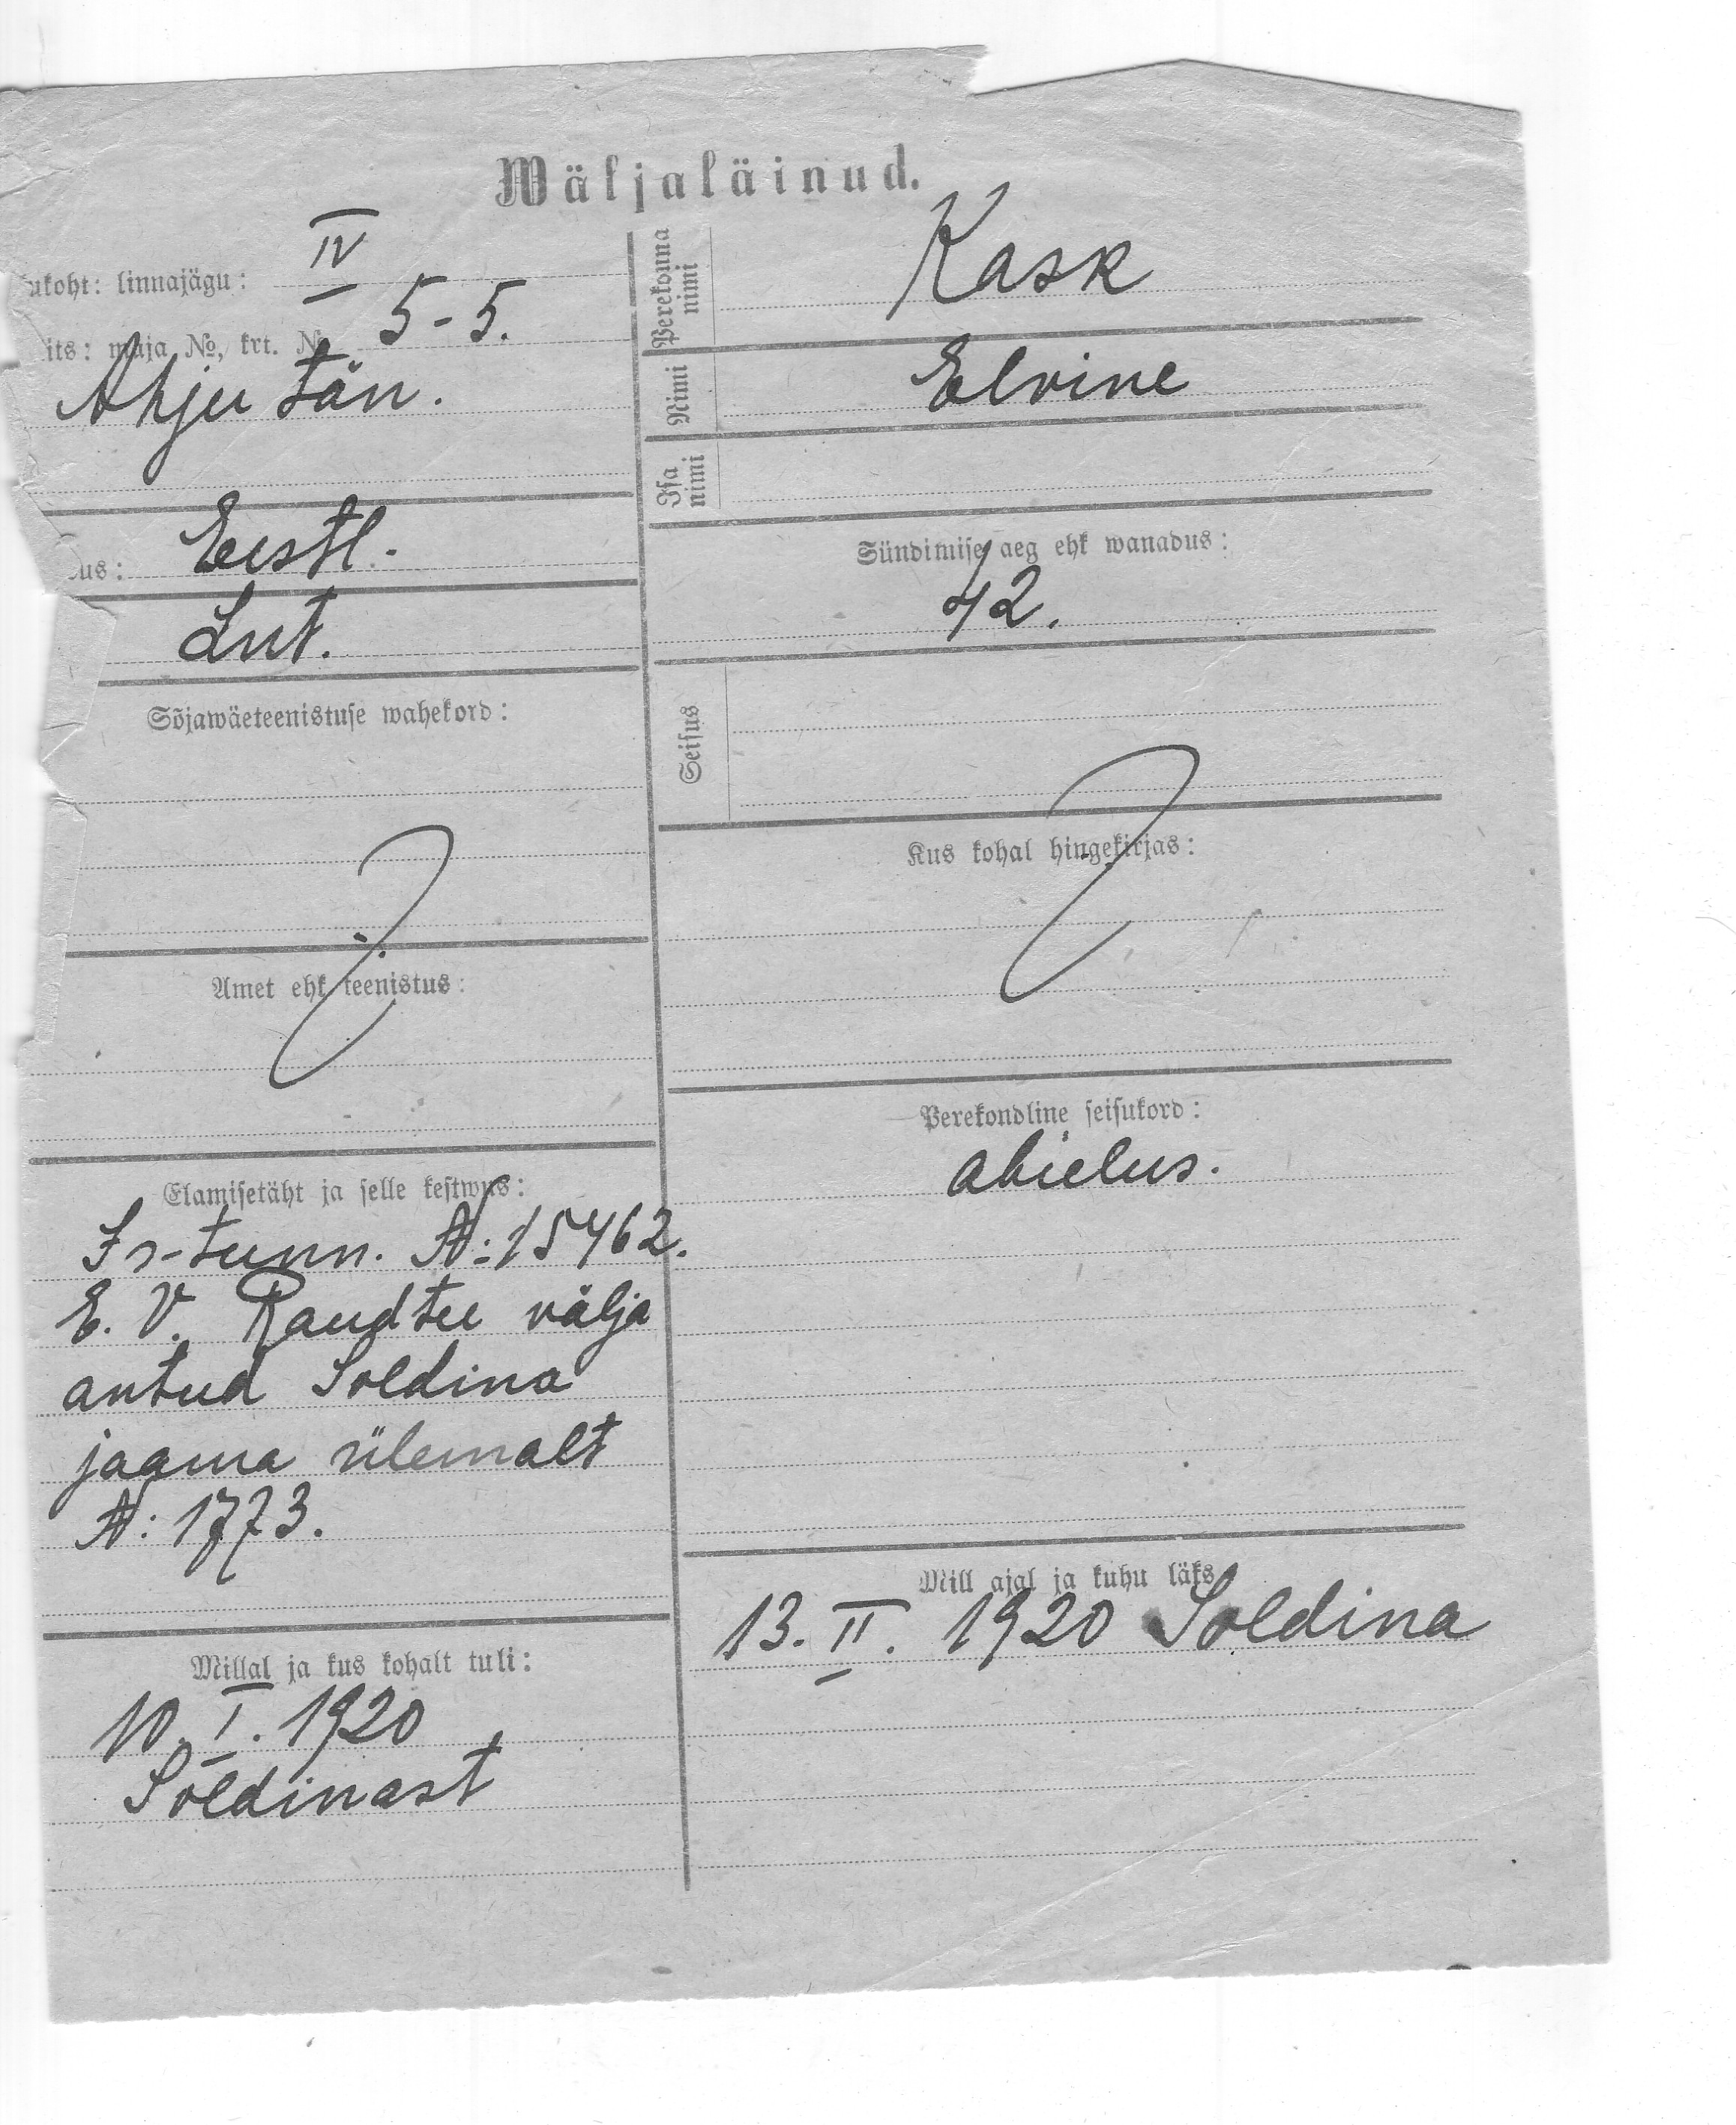 Wäljaläinud.
ukoht: linnajägu: IV
its: maja №, krt. № 5-5.
Ahju tän.
us: Eestl.
Lut.
Sõjawäeteenistuse wahekord:
Amet ehk teenistus:
Elamisetäht ja selle kestwus:
Is-tunn. №: 15462.
E. V. Raudtee välja
antud Soldina
jaama ülemalt
№: 1773.
Millal ja kus kohalt tuli:
10. I. 1920
Soldinast
Perekonna nimi Kask
Nimi Elvine
Isa nimi
Sündimise aeg ehk wanadus:
42.
Seisus
Kus kohal hingekirjas:
Perekondline seisukord:
abielus.
Mill ajal ja kuhu läks
13. II. 1920 Soldina